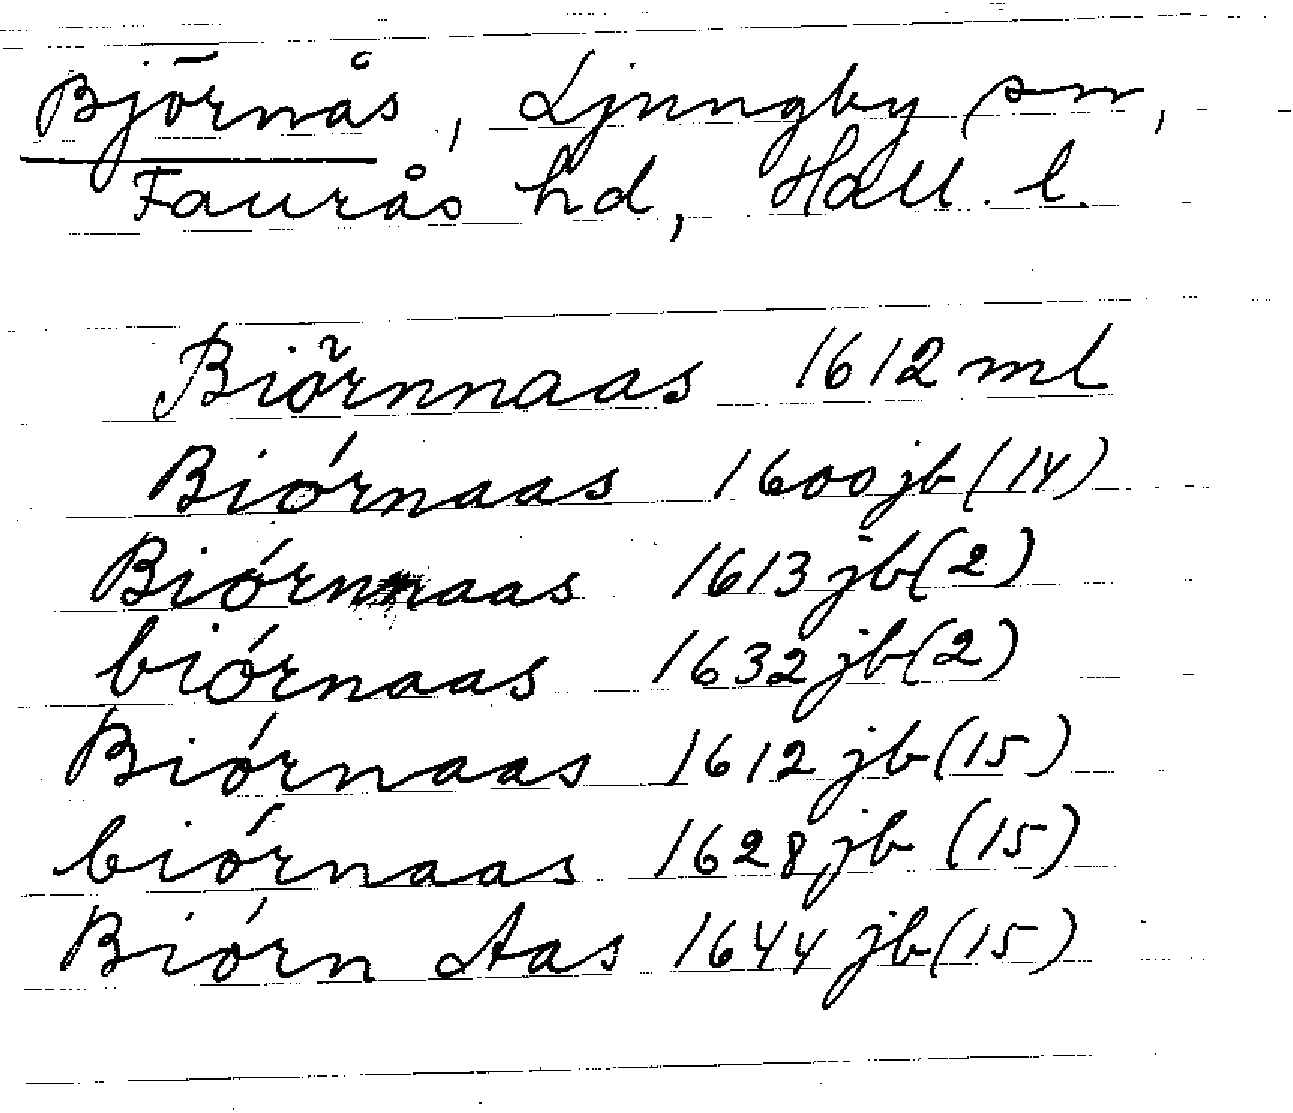 Björnås, Ljungby sn,
Faurås hd, Hall. l.
Biörnnaas 1612 ml
Biórnaas 1600 jb (14)
Biórnaas 1613 jb (2)
biórnaas 1632 jb (2)
Biórnaas 1612 jb (15)
biórnaas 1628 jb (15)
Biórn Aas 1644 jb (15)